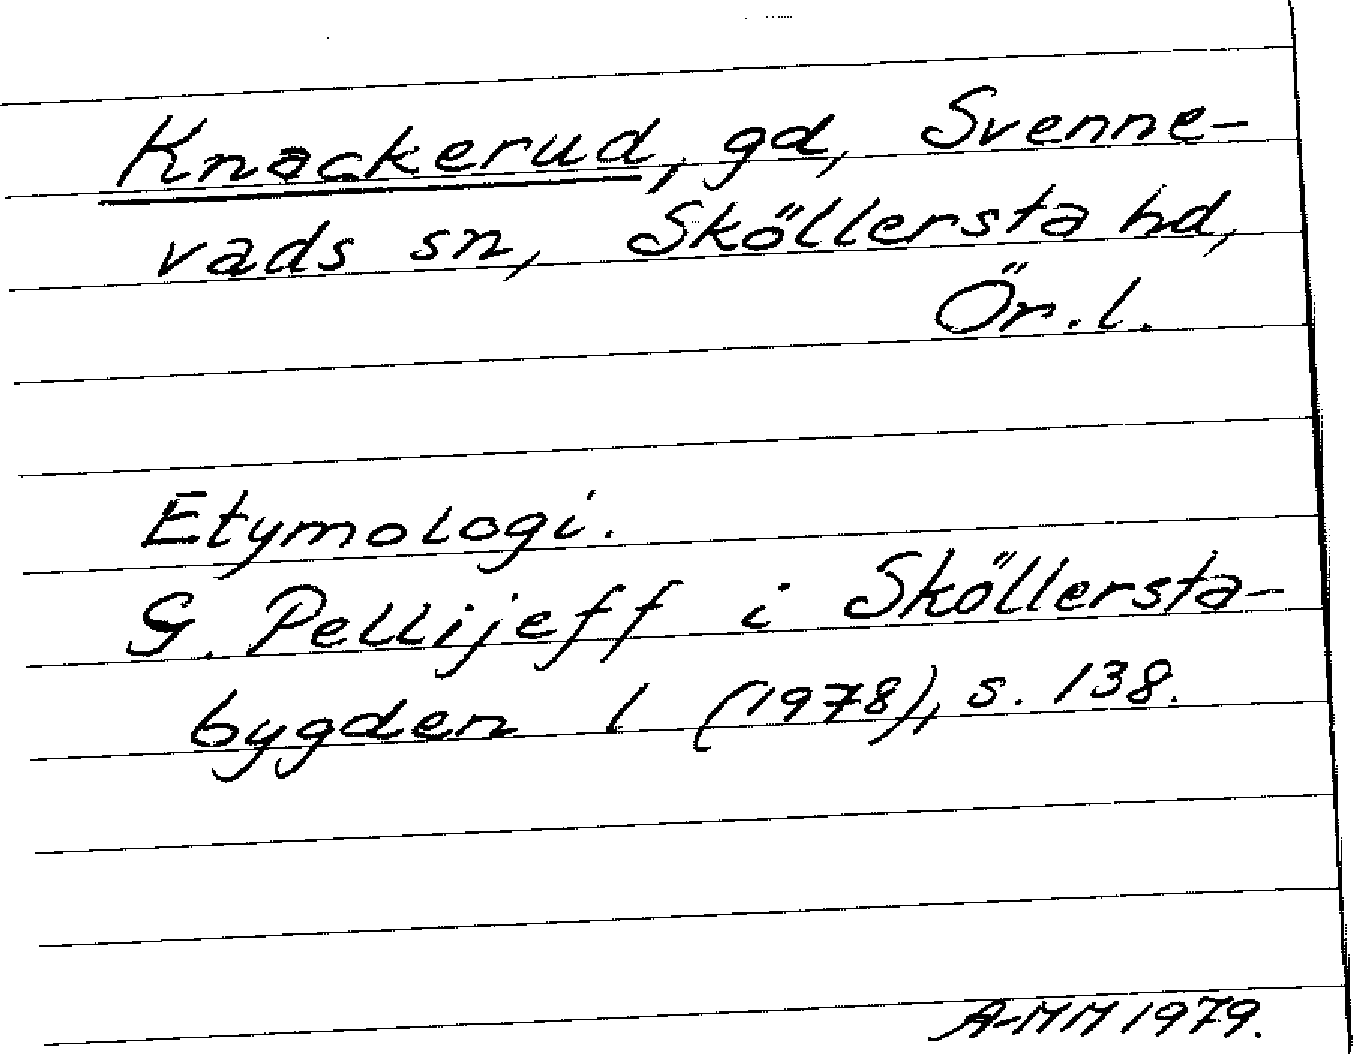 Knackerud, gd, Svenne-
vads sn, Sköllersta hd,
Ör. l.
Etymologi.
G. Pellijeff i Sköllersta-
bygden 1 (1978), s. 138.
A-MM 1979.